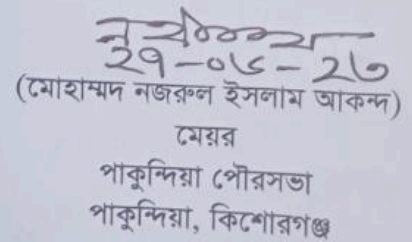 ২৭-০৬-২৩
(মোহাম্মদ নজরুল ইসলাম আকন্দ)
মেয়র
পাকুন্দিয়া পৌরসভা
পাকুন্দিয়া, কিশোরগঞ্জ